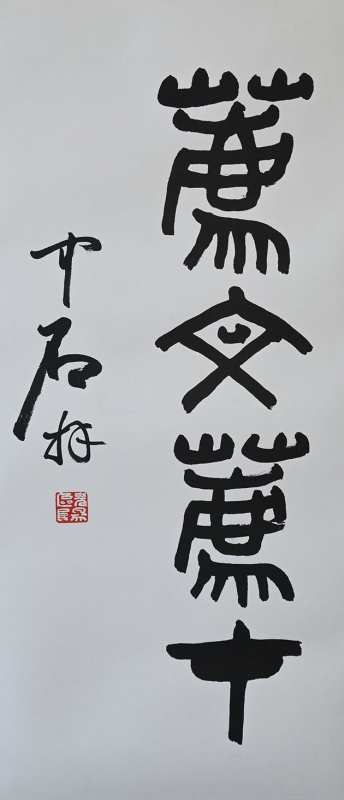 薦文薦才
中石拜